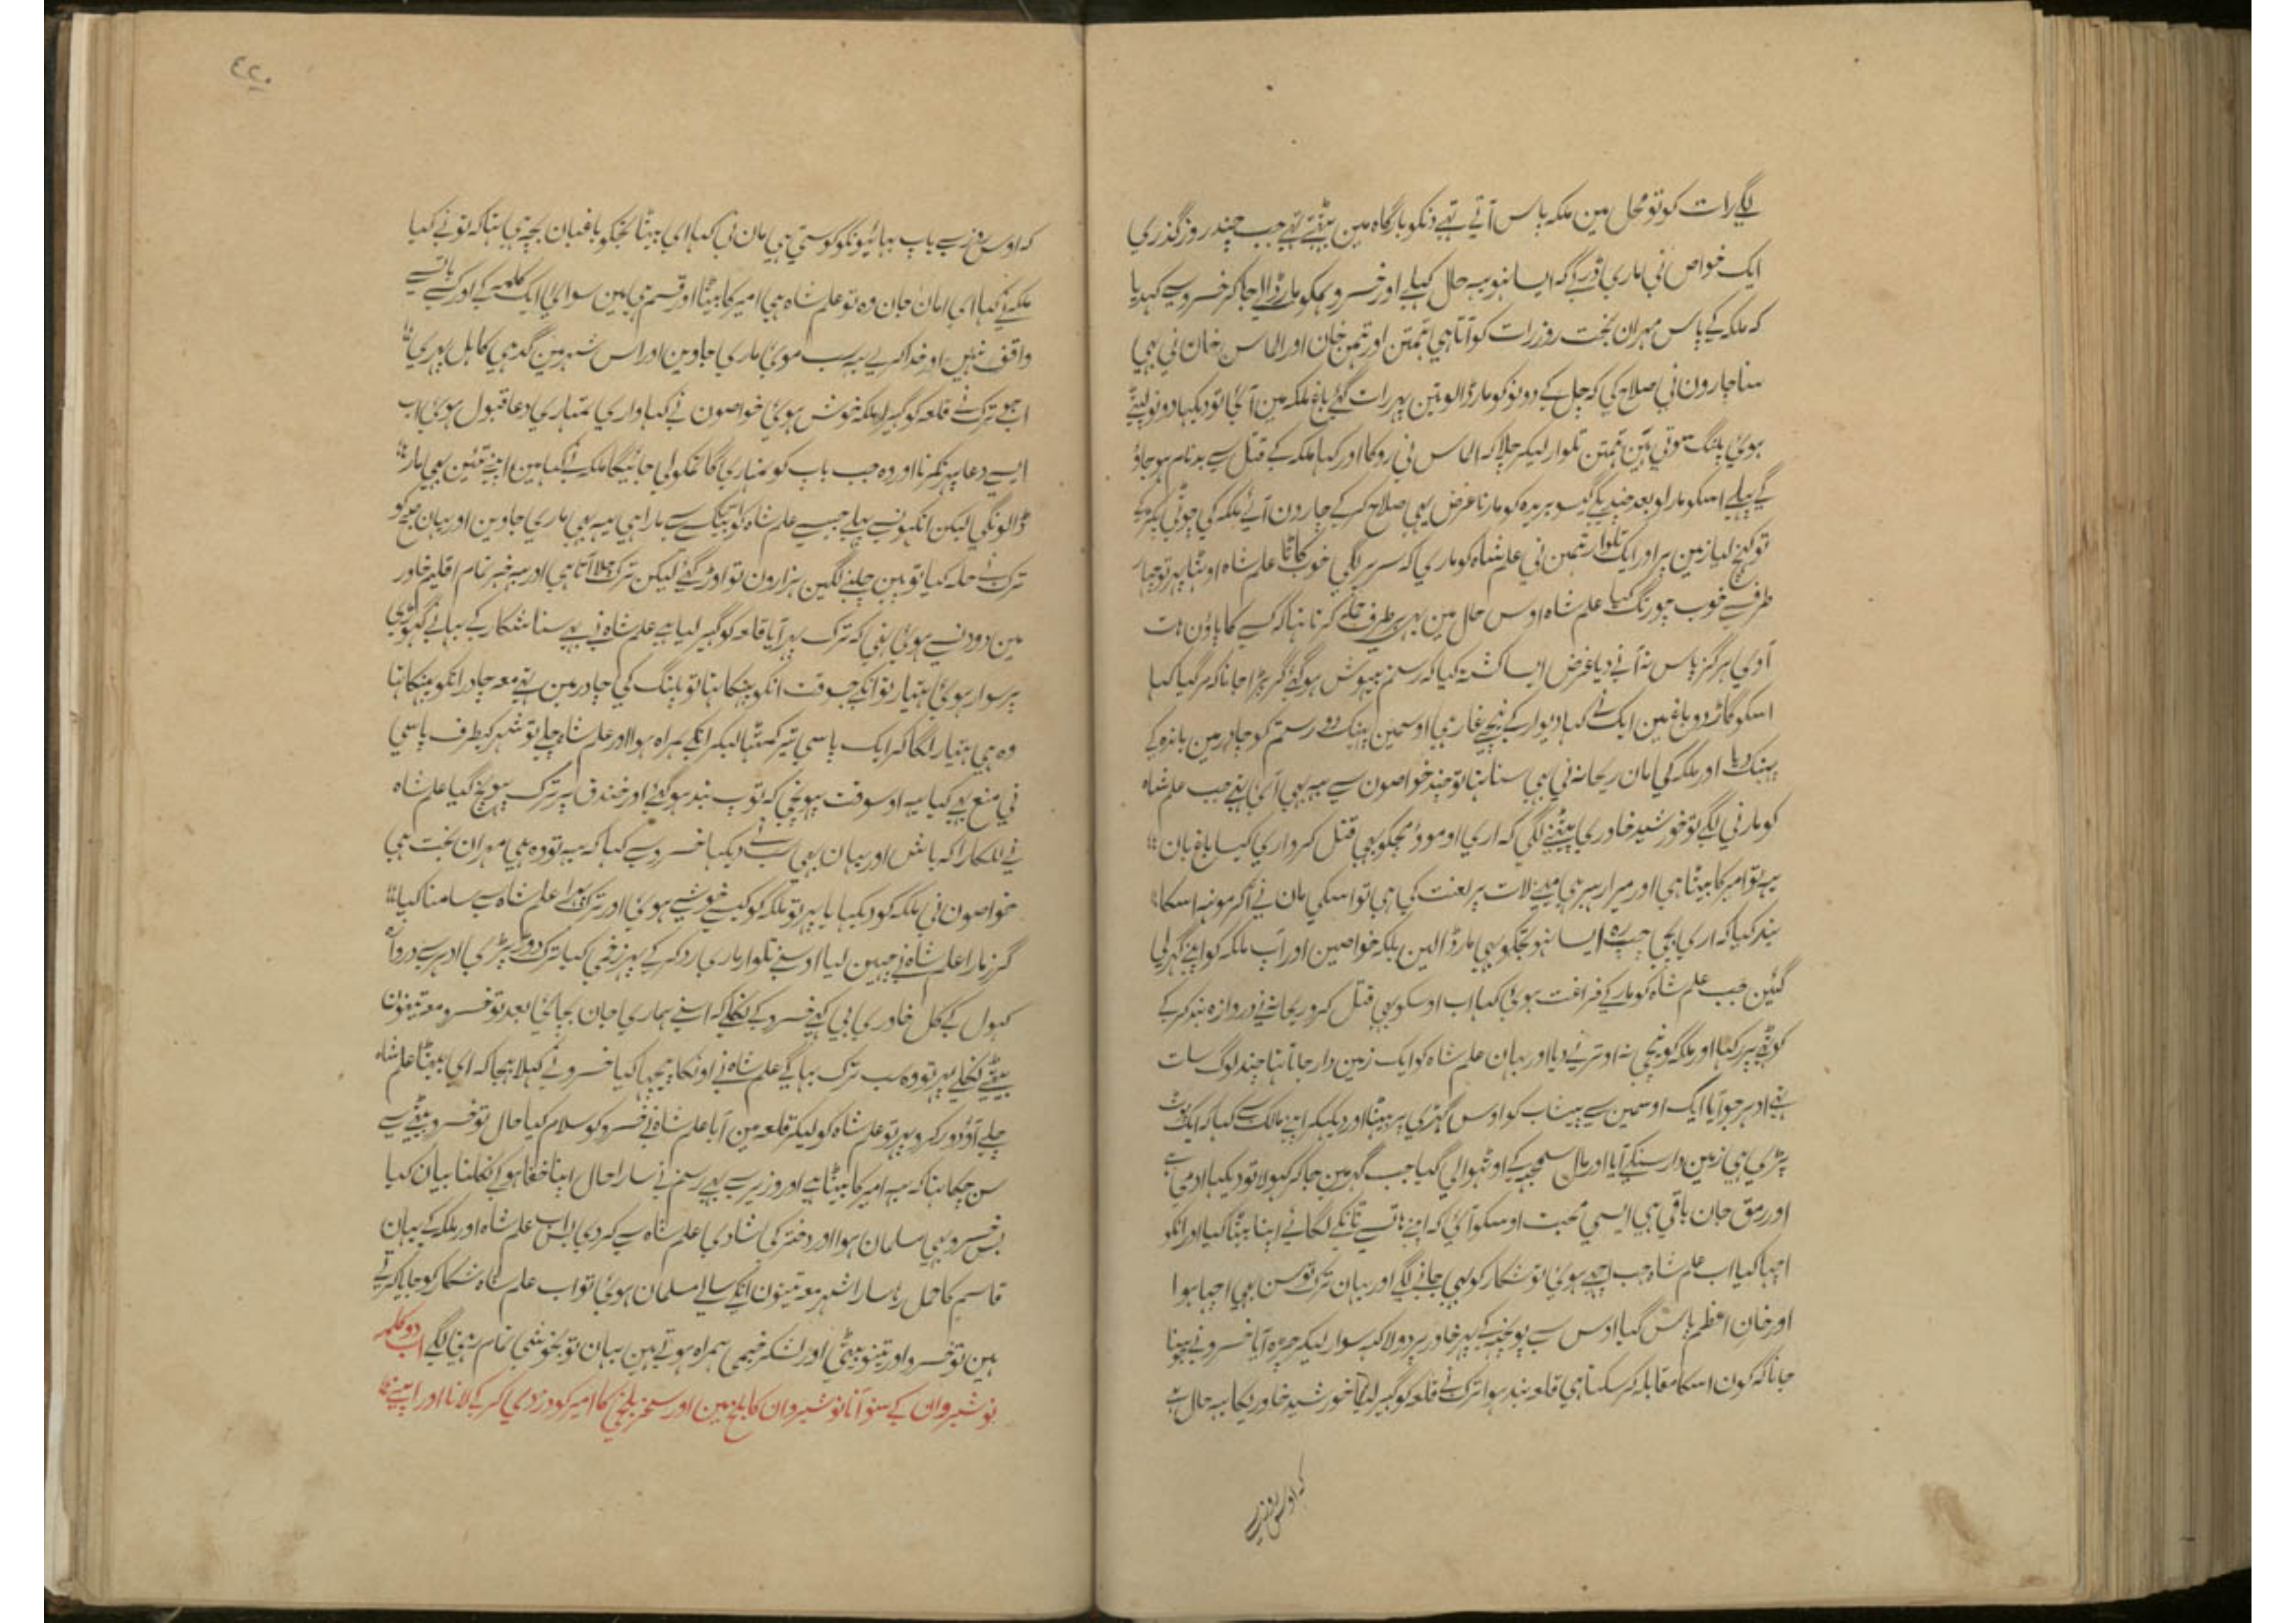 لگے رات کو تو محل مین ملکہ پاس آتے تہے دنکو بارگاہ مین بیٹہتے تہے جب چند روز گذری
ایک خواص نی ماری ڈر کے کہ ایسا نہو یہ حال کہلے اور خسرو ہمکو مار ڈالے جا کر خسرو سے کہدیا
کہ ملکہ کے پاس مہران بخت روز رات کو آتا ہی تہمتن اور تہمن خان اور الماس خان نی بہی
سنا چارون نی صلاح کی کہ چل کے دونو کو مار ڈالو تین پہر رات گئے باغ ملکہ مین آئی تو دیکہا دونو لپٹے
ہوئی پلنگ سوتی ہین تہمتن تلوار لیکر چلا کہ الماس نی روکا اور کہا ملکہ کے قتل سے بدنام ہو جاؤ
گے پہلے اسکو مارلو بعد چندے گیسو بریدہ کو مارنا غرض یہی صلاح کر کے چارون آئے ملکہ کی چوٹی پکڑ کے
تو کہنچ لیا زمین پر اور ایک تلوار تہمن نی علمشاہ کو ماری کہ سر پر لگی خوب کاٹا علم شاہ اوٹہا پہر تو چہار
طرف سے خوب چورنگ کیا علم شاہ اوس حال مین بہی ہر طرف حملے کرتا تہا کہ کسے کا پاؤن ہات
آوی ہرگز پاس نہ آنے دیا غرض ایسا کشتہ کیا کہ رستم بیہوش ہو گئے گر پڑا جانا کہ مر گیا کہا
اسکو گاڑ دو باغ مین ایک نے کہا دیوار کے نیچے غار ہی اوسمین پہینک دو رستم کو چادر مین باندہ کے
پہینک دیا اور ملکہ کی مان ریحانہ نی بہی سنا تہا تو چند خواصون سے یہ بہی آئی تہے جب علم شاہ
کو مارنی لگے تو خورشید خاوری پیٹنے لگی کہ اری او موو مجکو بہی قتل کرو اری کیسا باغ بان
یہ تو امیر کا بیٹا ہی اور میرا رہبر ہی مینے لات پر لعنت کی ہی تو اسکی مان نے آکر مونہہ اسکا
بند کیا کہ اری بچی چپ رہ ایسا نہو تجکو بہی مار ڈالین بلکہ خواصین اور آپ ملکہ کو اپنے گہر لی
گئین جب علم شاہ کو مار کے فراغت ہوئی کہا اب اوسکو بہی قتل کرو ریحانہ نے دروازہ بند کر کے
کوٹہے پر رکہا اور ملکہ کو نیچی نہ اوترنے دیا اور یہان علم شاہ کو ایک زمین دار جاتا تہا چند لوگ سات
تہے ادہر جو آیا ایک اوسمین سے پیشاب کو اوس گہڑی پر بیٹہا اور دیکہکر اپنے مالک سے کہا کہ ایک
پڑی ہی زمین دار سنکے آیا اور مال سمجہہ کے اوٹہوا لی گیا جب گہر مین جا کر کہولا تو دیکہا ادمی ہے
اور رمق جان باقی ہی ایسی محبت اوسکو آئی کہ اپنے ہاتسے ٹانکے لگائے اپنا بیٹا کیا اور انکو
اچہا کیا اب علم شاہ جب اچہے ہوئی تو شکار کو بہی جانے لگے اور یہان ترک توسن بہی اچہا ہوا
اور خان اعظم پاس گیا اوس سے پوچہہ کے پہر خاور پر دو لاکہہ سوار لیکر چڑہ آیا خسرو نے
جانا کہ کون اسکا مقابلہ کر سکتا ہی قلعہ بند ہوا ترک نے قلعہ کو گہیر لیا خورشید خاوریکا یہ حال ہے
کہ اوس روز سے
٤٢٠
کہ اوس روز سے باپ بہائیونکو کوستی ہی مان نی کہا ای بیٹا تجکو باغبان بچہ ہی تہا کہ تونے کیا
ملکہ نے کہا ای امان جان وہ تو علم شاہ ہی امیر کا بیٹا اور قسم ہی مین سوائی ایک کلمہ کے اور کسے باتسے
واقف نہین اور خدا کرے یہ سب موئی ماری جاوین اور اس شہر مین گدہی کا ہل پہری
اب جو ترک نے قلعہ کو گہیرا ملکہ خوش ہوئی خواصون نے کہا واری تمہاری دعا قبول ہوئی اب
ایسے دعا پہر نکرنا اور وہ جب باپ کو تمہاری ماریگا تمکو لی جائیگا ملکہ نے کہا مین اپنے تئین بہی مار
ڈالونگی لیکن انکہونسے پہلے جیسے علم شاہ کو اینکے سے مارا ہی یہ بہی ماری جاوین اور یہان صبح کو
ترک نے حملہ کیا توپین چلنے لگین ہزارون تو اوڑ گئے لیکن ترک چلا آتا ہی اور یہ خبر تمام اقلیم خاور
مین دود نسے ہوئی تہی کہ ترک پہر آیا قلعہ کو گہیر لیا ہے علم شاہ نے بہی سنا شکار کے بہانے گہوڑی
پر سوار ہوئی ہتیار تو انکے جسوقت انکو پہنکا تہا تو پلنگ کی چادر مین تہے معہ چادر انکو پہنکا تہا
وہ ہی ہتیار لگا کر ایک پاسی تیر کمٹہا لیکر انکے ہمراہ ہوا اور علم شاہ چلے تو شہر کیطرف پاسی
نی منع بہی کیا یہ اوسوقت پہونچی کہ توپ بند ہو گئے اور خندق پر ترک پہونچ گیا علم شاہ
نے للکارا کہ باش اور یہان بہی سب نے دیکہا خسرو سے کہا کہ یہ تو وہ ہی مہران بخت ہی
خواصون نی ملکہ کو دیکہایا پہر تو ملکہ کو کیسے خوشے ہوئی اور ترک پہرا علم شاہ سے سامنا کیا
گرز مارا علم شاہ نے چہین لیا اوسنے تلوار ماری رد کر کے پہر زخمی کیا ترک دوڑ پڑی ادہر سے دروازہ
کہول کے کل خاوری بی کہے خسرو کے نکلے کہ اسنے ہماری جان بچائی بعد تو خسرو معہ تینون
بیٹے نکلے پہر تو وہ سب ترک بہاگے علم شاہ نے اونکا پیچہا کیا خسرو نے کہلا بہیجا کہ ای بیٹا علم شاہ
چلے آؤ دور کرو پہر تو علم شاہ کو لیکر قلعہ مین آیا علم شاہ نے خسرو کو سلام کیا حال تو خسرو بیٹے سے
سن چکا تہا کہ یہ امیر کا بیٹا ہے اور وزیر سے بہی رستم نے سارا حال اپنا خفا ہو کے نکلنا بیان کیا
بس خسرو بہی مسلمان ہوا اور دختر کی شادی علم شاہ سے کر دی بس اب علم شاہ اور ملکہ کے یہان
قاسم کا حمل رہا سارا شہر معہ تینون انکے سالے مسلمان ہوئی تو اب علم شاہ شکار کو جایا کرتے
ہین تو خسرو اور تینو بیٹی اور لشکر خیمی ہمراہ ہوتے ہین یہان تو بخوشی تمام رہنی لگے اب دو کلمہ
نوشیروان کے سنو آنا نوشیروان کا بلخ مین اور سخر بلخی کا امیر کو دزدی کر کے لانا اور اپنے